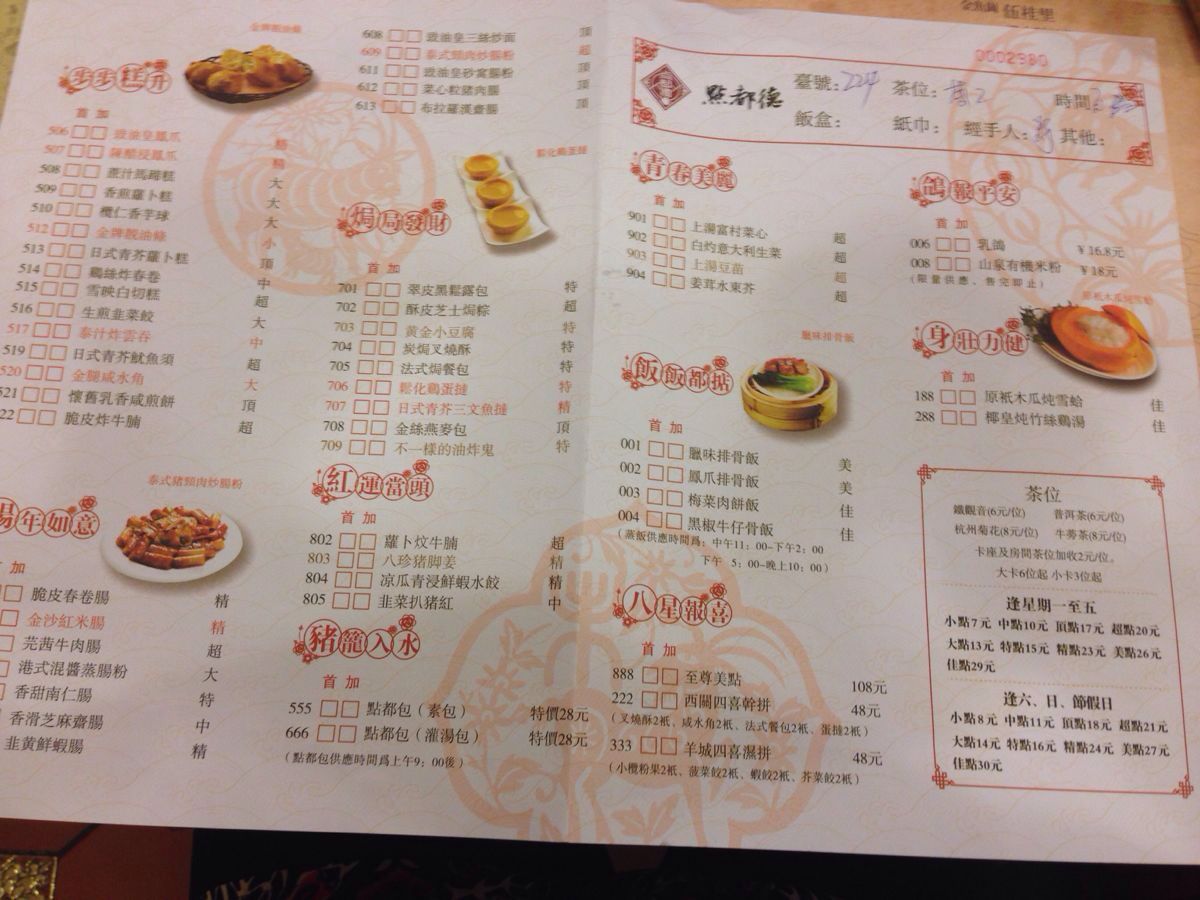 金牌靚油條
步步糕升
首 加
506 豉油皇鳳爪
507 陳醋浸鳳爪
508 蔗汁馬蹄糕 大
509 香煎蘿卜糕 大
510 欖仁香芋球 大
512 金牌靚油條 小
513 日式青芥蘿卜糕 頂
514 鷄絲炸春卷 中
515 雪映白切糕 超
516 生煎韭菜餃 大
517 泰汁炸雲吞 中
519 日式青芥魷魚須 超
520 金腿咸水角 大
521 懷舊乳香咸煎餅 頂
22 脆皮炸牛腩 超
泰式豬頸肉炒腸粉
腸年如意
加
脆皮春卷腸 精
金沙紅米腸 精
芫茜牛肉腸 超
港式混醬蒸腸粉 大
香甜南仁腸 特
香滑芝麻齋腸 中
韭黄鮮蝦腸 精
608 豉油皇三絲炒面 頂
609 泰式頸肉炒腸粉 超
611 豉油皇砂窩腸粉 頂
612 菜心粒豬肉腸 頂
613 布拉羅漢齋腸 頂
鬆化鷄蛋撻
焗局發財
首 加
701 翠皮黑鬆露包 特
702 酥皮芝士焗粽 超
703 黄金小豆腐 特
704 炭焗叉燒酥 特
705 法式焗餐包 特
706 鬆化鷄蛋撻 特
707 日式青芥三文魚撻 精
708 金絲燕麥包 頂
709 不一樣的油炸鬼 特
紅運當頭
首 加
802 蘿卜炆牛腩 超
803 八珍猪脚姜 精
804 凉瓜青浸鮮蝦水餃 精
805 韭菜扒豬紅 中
豬籠入水
首 加
555 點都包（素包） 特價28元
666 點都包（灌湯包） 特價28元
（點都包供應時間爲上午9：00後）
0002980
點都德
臺號：224 茶位： 時間
飯盒： 紙巾： 經手人： 其他：
青春美麗
首 加
901 上湯富村菜心 超
902 白灼意大利生菜 超
903 上湯豆苗 超
904 姜茸水東芥 超
臘味排骨飯
飯飯都掂
首 加
001 臘味排骨飯 美
002 鳳爪排骨飯 美
003 梅菜肉餅飯 佳
004 黑椒牛仔骨飯 佳
（蒸飯供應時間爲：中午11：00-下午2：00
下午 5：00-晚上10：00）
八星報喜
首 加
888 至尊美點 108元
222 西關四喜幹拼 48元
（叉燒酥2衹、咸水角2衹、法式餐包2衹、蛋撻2衹）
333 羊城四喜濕拼 48元
（小欖粉果2衹、菠菜餃2衹、蝦餃2衹、芥菜餃2衹）
鴿報平安
首 加
006 乳鴿 ￥16.8元
008 山泉有機米粉 ￥18元
（限量供應、售完即止）
原衹木瓜炖雪蛤
身壯力健
首 加
188 原衹木瓜炖雪蛤 佳
288 椰皇炖竹絲鷄湯 佳
茶位
鐵觀音(6元/位) 普洱茶(6元/位)
杭州菊花(8元/位) 牛蒡茶(8元/位)
卡座及房間茶位加收2元/位。
大卡6位起 小卡3位起
逢星期一至五
小點7元 中點10元 頂點17元 超點20元
大點13元 特點15元 精點23元 美點26元
佳點29元
逢六、日、節假日
小點8元 中點11元 頂點18元 超點21元
大點14元 特點16元 精點24元 美點27元
佳點30元